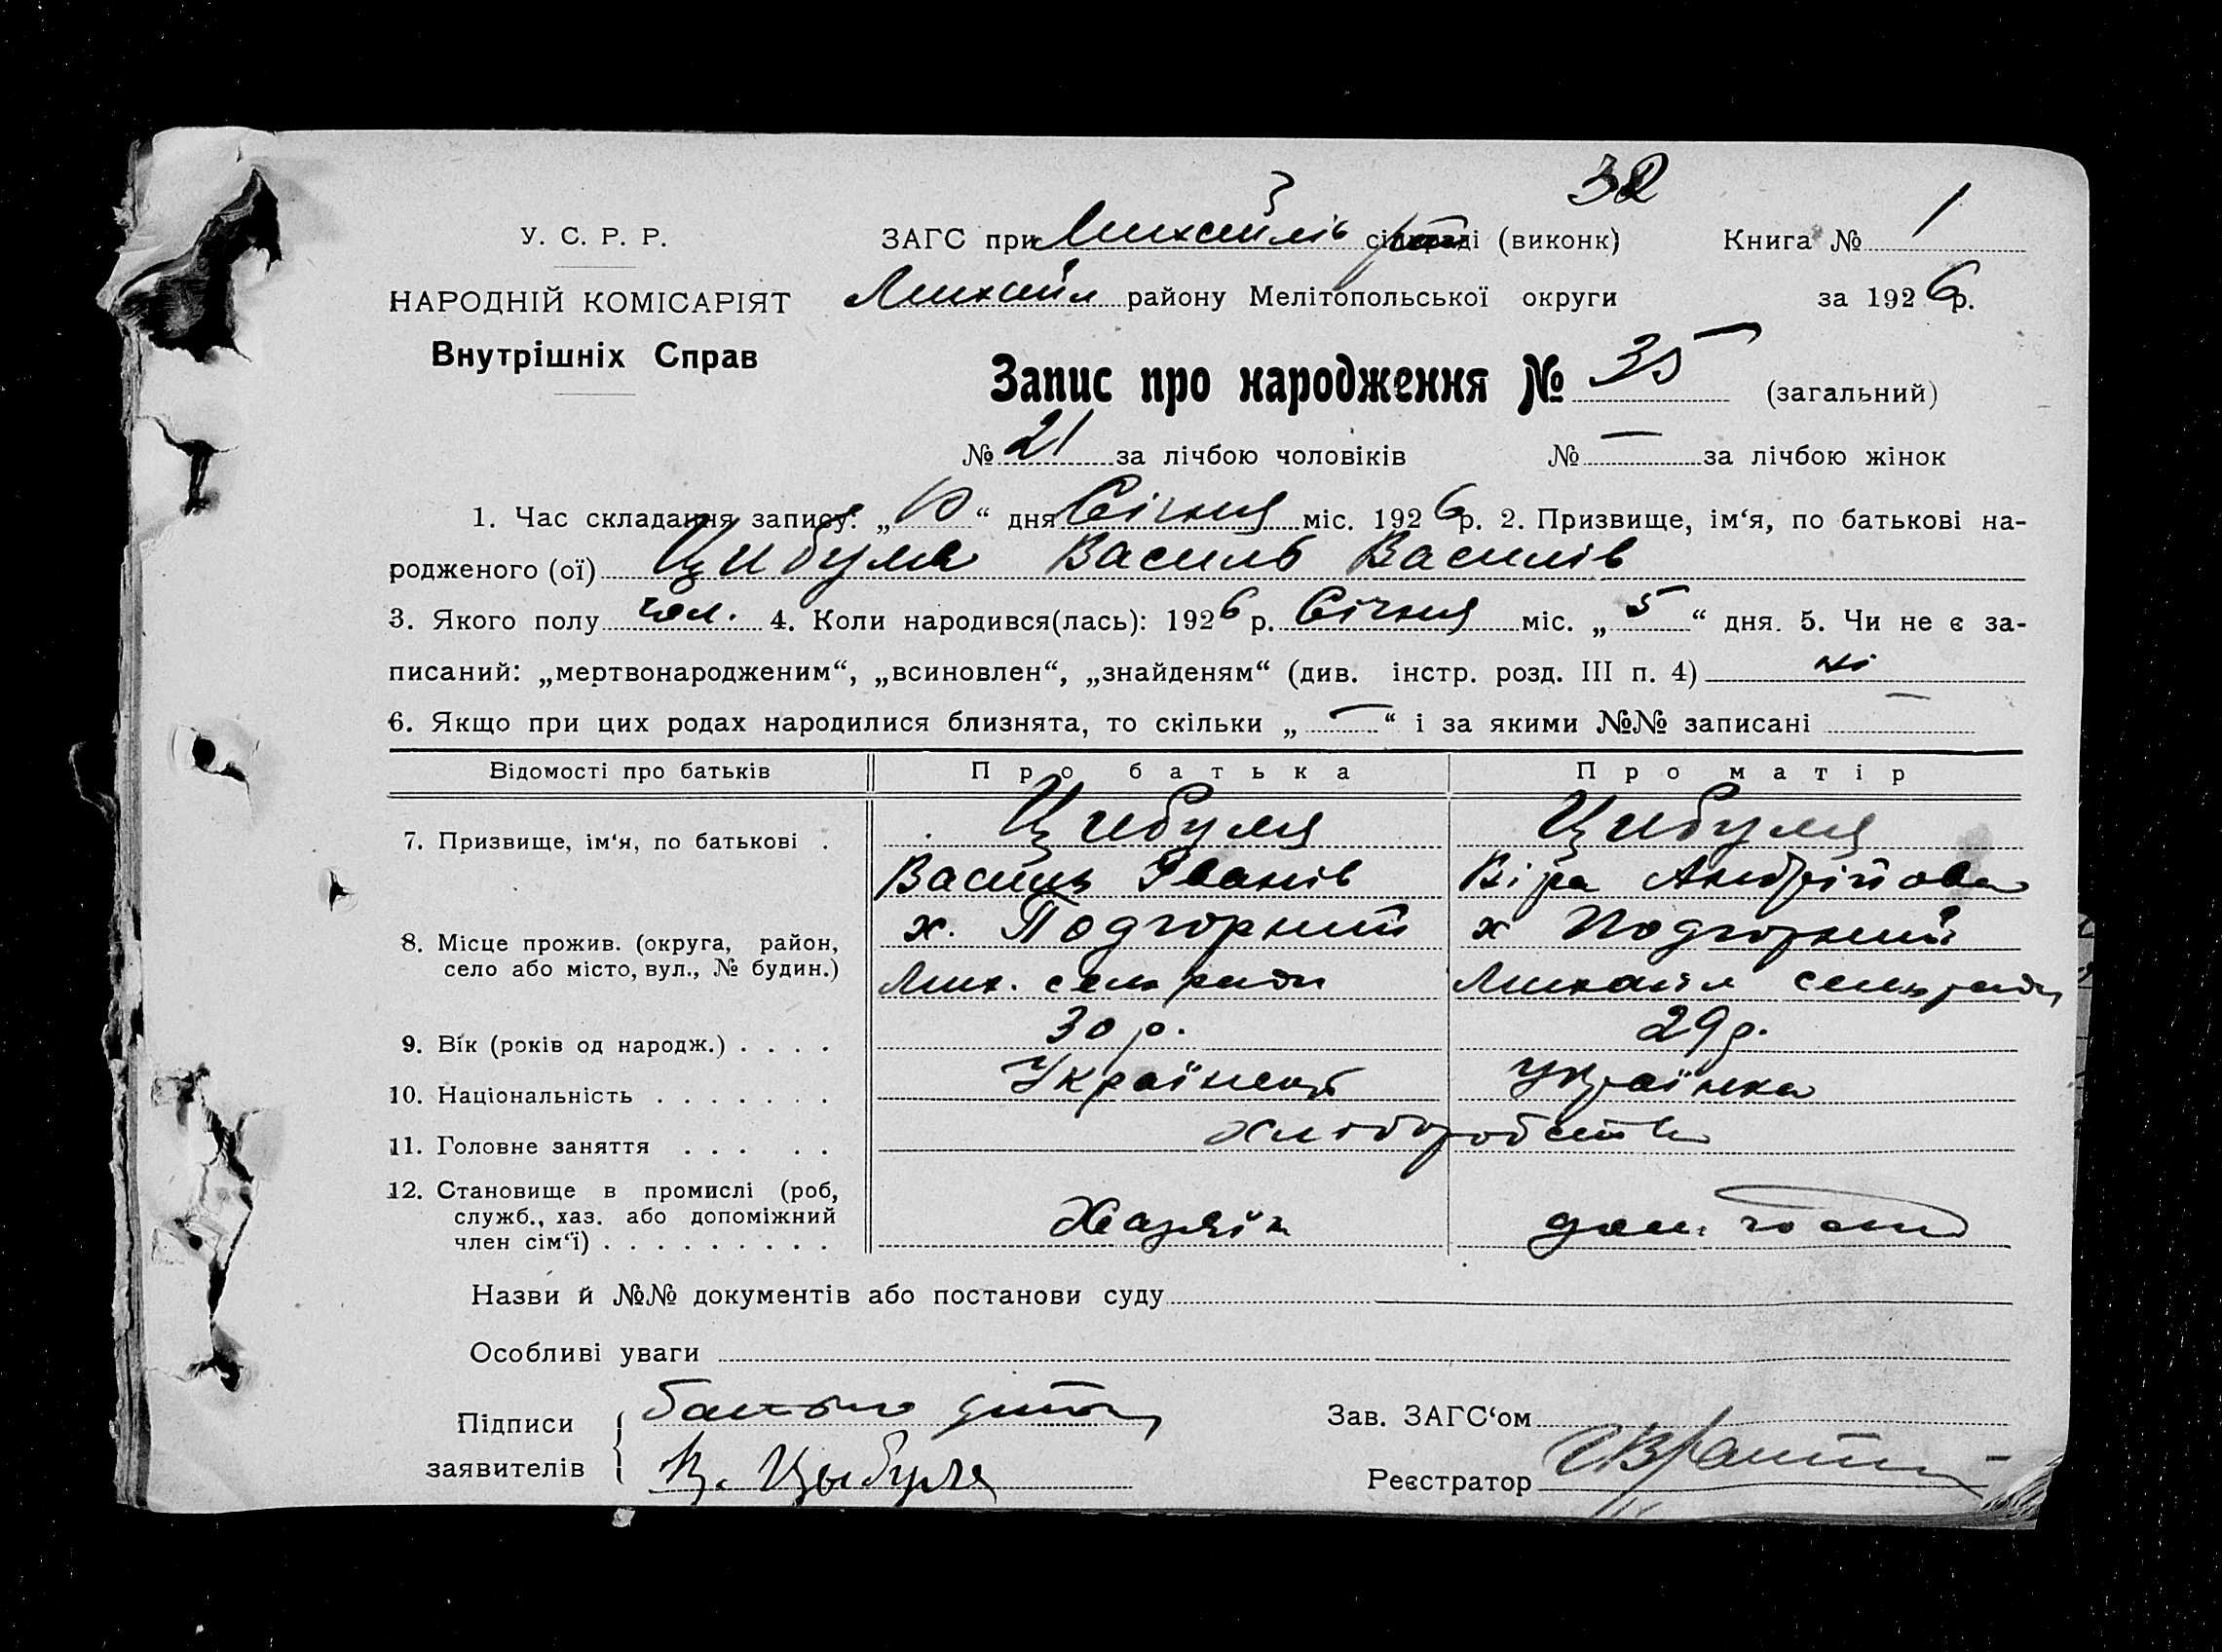 32
У. С. Р. Р.
ЗАГС при Михайлів рай (виконк) Книга № 1
НАРОДНІЙ КОМІСАРІЯТ
Михайл району Мелітопольської округи за 1926 р.
Внутрішніх Справ
Запис про народження № 35 (загальний)
№ 21 за лічбою чоловіків № — за лічбою жінок
1. Час складання запису: „10“ дня Січня міс. 1926 р. 2. Призвище, ім‘я, по батькові на-
родженого (ої) Цибуля Василь Василів
3. Якого полу чол. 4. Коли народився(лась): 1926 р. Січня міс. „5“ дня. 5. Чи не є за-
писаний: „мертвонародженим“, „всиновлен“, „знайденям“ (див. інстр. розд. III п. 4) ні
6. Якщо при цих родах народилися близнята, то скільки „—“ і за якими №№ записані —
Відомості про батьків Про батька Про матір
7. Призвище, ім‘я, по батькові . Цибуля Цибуля
Василь Іванів Віра Андрійова
8. Місце прожив. (округа, район, х. Подгорний х Подгорний
село або місто, вул., № будин.) Мих. сельради Михайл сельради
9. Вік (років од народж.) . . . . 30 р. 29 р.
10. Національність . . . . . . . Українець Українка
11. Головне заняття . . . . . Хліборобство
12. Становище в промислі (роб,
служб., хаз. або допоміжний Хазяїн дом.
член сім‘ї) . . . . . . . . .
Назви й №№ документів або постанови суду
Особливі уваги
Підписи батько
Зав. ЗАГС‘ом
заявителів В. Цыбуля
Реєстратор